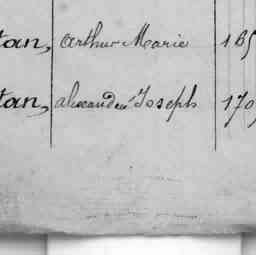 tan, Arthur Marie 165
tan, alexandre Joseph 170